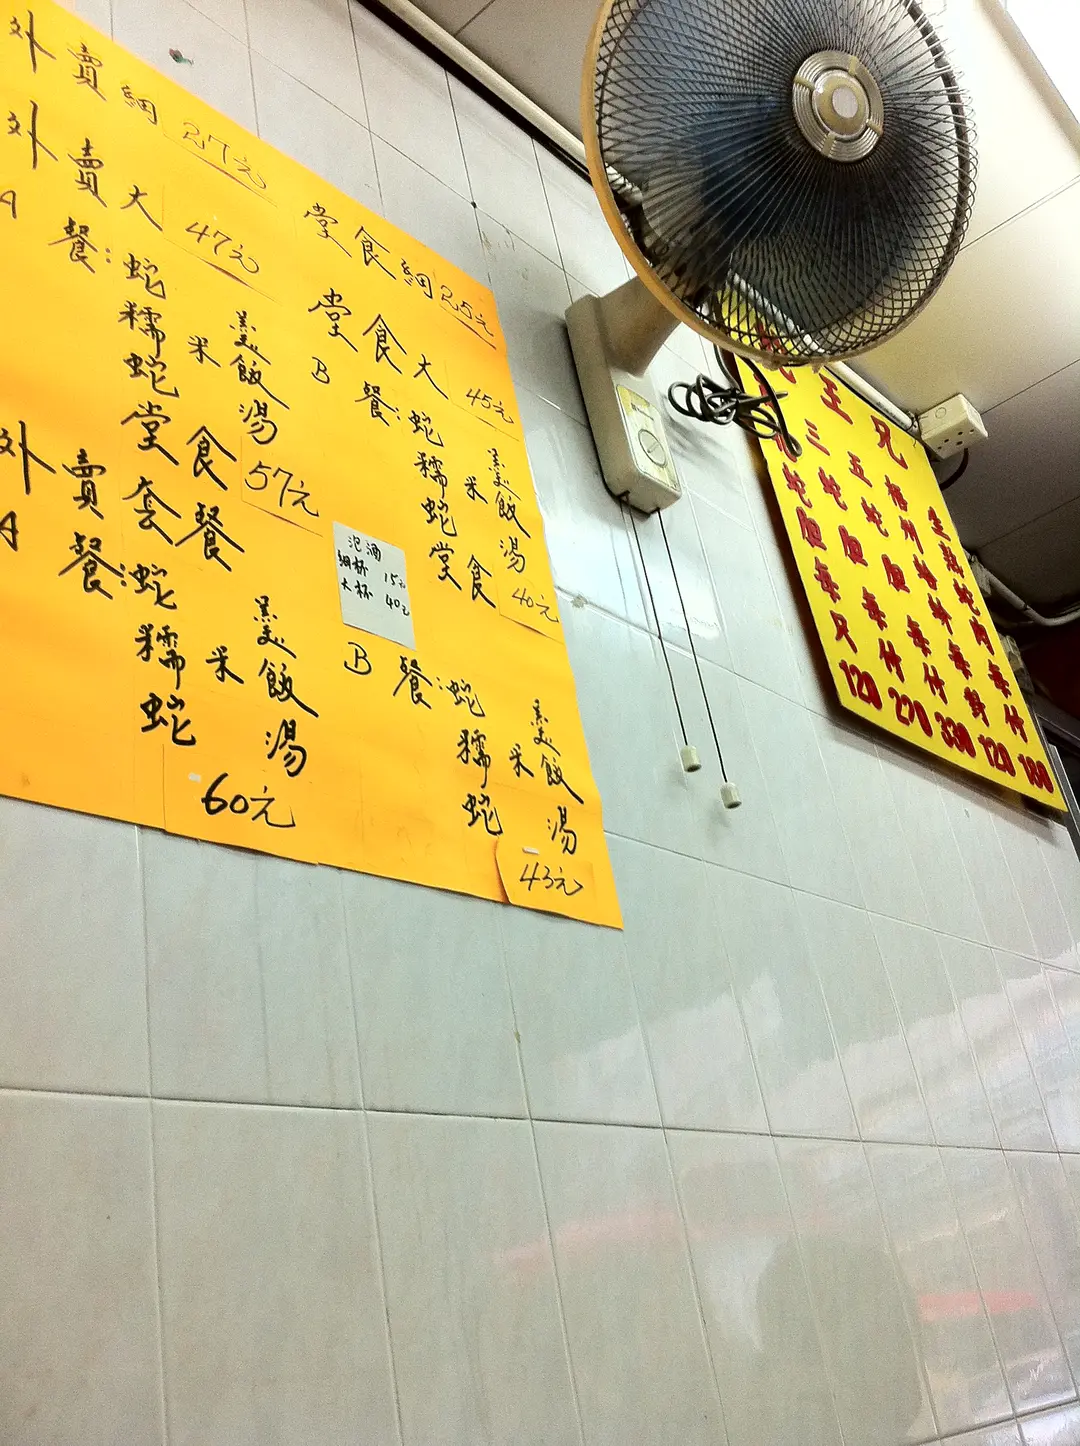 外賣細 27元
外賣大 47元
A餐:蛇羹
糯米飯
蛇湯
堂食 57元
套餐
外賣
A餐:蛇羹
糯米飯
蛇湯
60元
堂食細 25元
堂食大 45元
B餐:蛇羹
糯米飯
蛇湯
堂食 40元
泡酒
細杯 15元
大杯 40元
B餐:蛇羹
糯米飯
蛇湯
43元
王兄
蛇胆每只 120
三蛇胆每付 270
五蛇胆每付 330
每 120
蛇肉每付 180